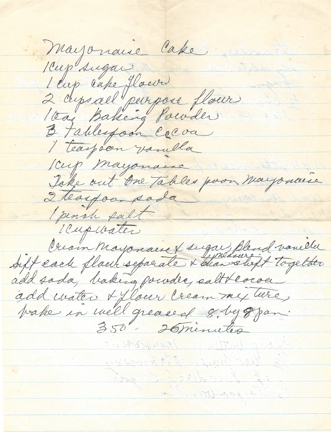 Mayonaise Cake
1 cup sugar
1 cup cake flour
2 cups all purpose flour
1 tea Baking Powder
3 Tablespoon Cocoa
1 teaspoon vanilla
1 cup Mayonaise
Take out One Tablespoon Mayonaise
2 teaspoon soda
1 pinch salt
1 cup water
Cream Mayonaise & sugar, blend vanilla
Sift each flour seperate & than sift together
add soda, baking powder, salt & cocoa
add water & flour cream mixture,
bake in well greased 8 by 8 pan.
350 - 26 minutes